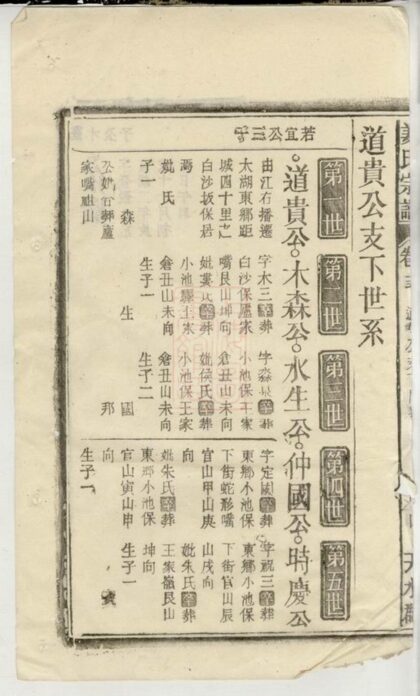 姜氏宗譜
卷
道貴公支下世系
第一世
第二世
第三世
第四世
第五世
若宜公三子
道貴公
木森公
水生公
仲國公
時慶公
由江右播遷
太湖東鄉距
城四十里之
白沙坂保居
焉
妣氏
子一
森
公妣合葬廬
家嘴祖山
字木三葬
白沙保廬家
嘴艮山坤向
妣龔氏葬
小池驛王家
倉丑山未向
生子一
生
字淼泉葬
小池保王家
倉丑山未向
妣侯氏葬
小池保王家
倉丑山未向
生子二
國
邦
字定國葬
東鄉小池保
下街蛇形嘴
官山甲山庚
向
妣朱氏葬
東鄉小池保
官山寅山申
向
生子一
字祝三葬
東鄉小池保
下街官山辰
山戌向
妣朱氏葬
王家嶺艮山
坤向
生子一
天水郡